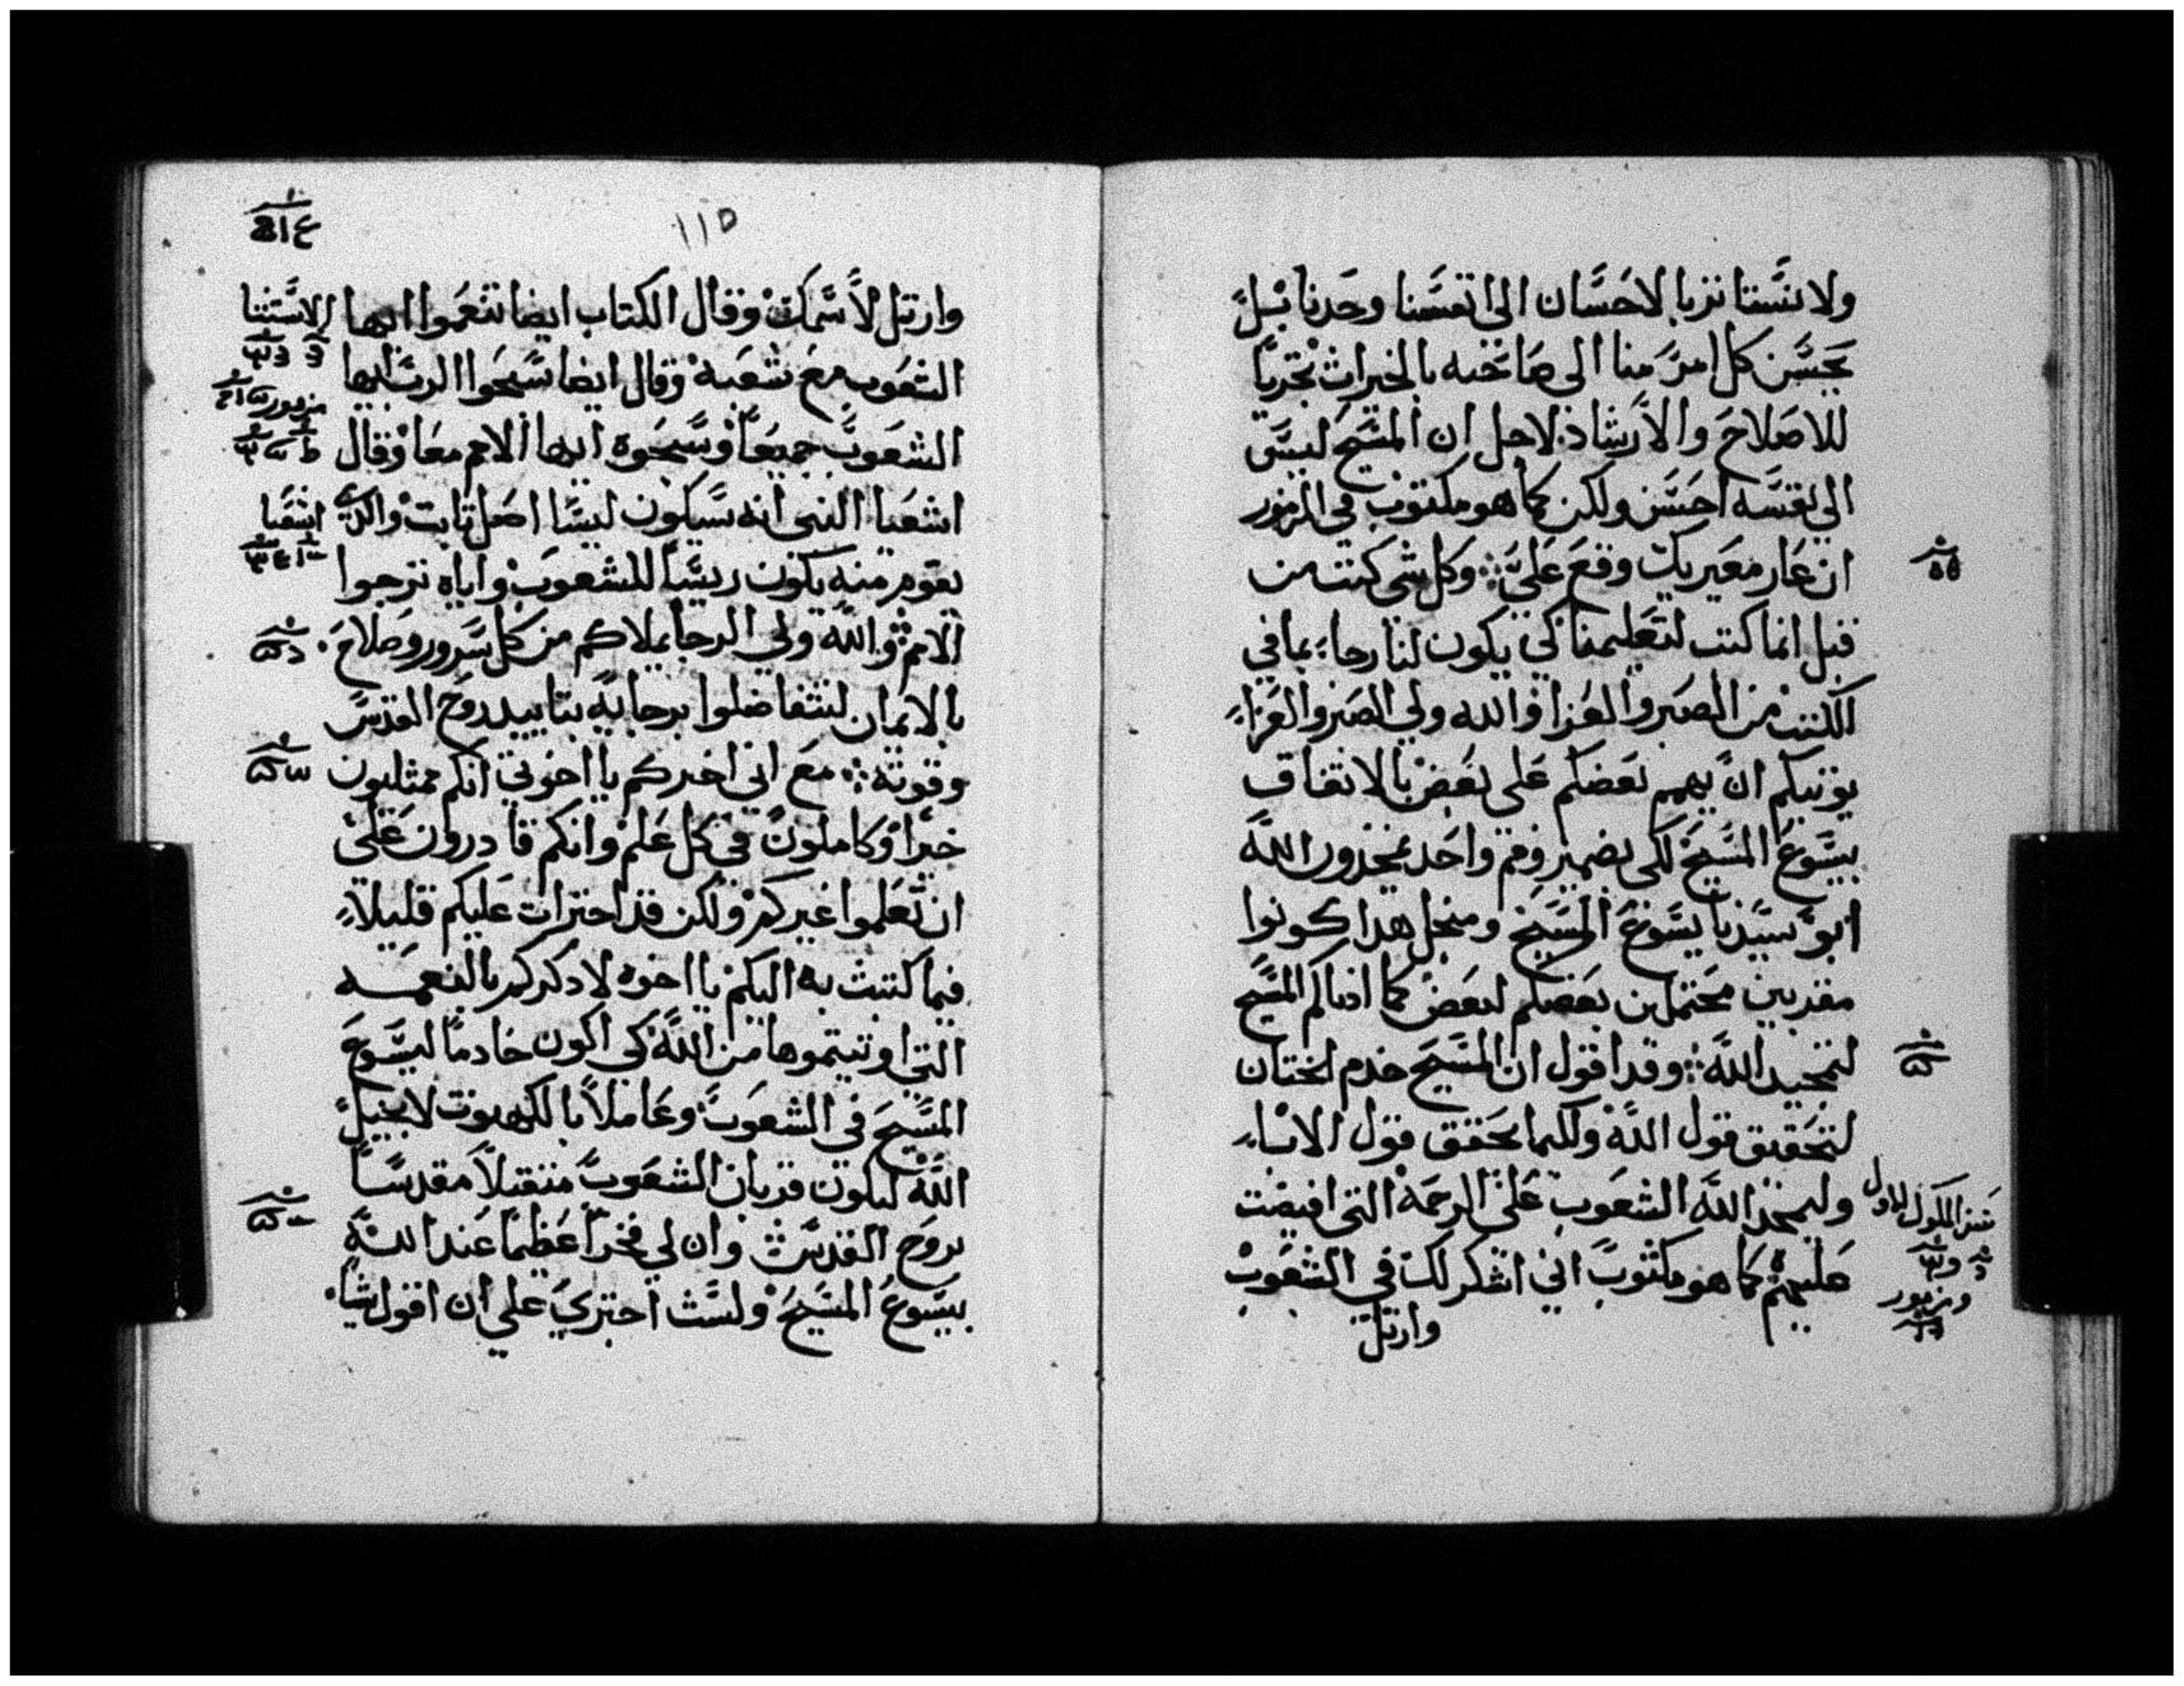 ولا نستانزيا لاحسان الى انفسنا وحدنا بل
يحسن كل امر منا الى صاحبه بالخيرات تحريا
للاصلاح والارشاد لاجل ان المسيح ليس
الي نفسه احسن ولكن كما هو مكتوب في المزمور
ان عار معيريك وقع علي وكل شي كتب من
قبل انما كتب لتعليمنا كي يكون لنا رجاء بما في
الكتب من الصبر والعزا والله ولي الصبر والعزاء
يوتيكم ان يهم بعضكم على بعض بالاتفاق
بيسوع المسيح لكي بضمير وفم واحد تمجدون الله
ابو سيدنا يسوع المسيح ومنجل هدا كونوا
مقربين محتملين بعضكم لبعض كما ادناكم المسيح
لتمجيد الله وقد اقول ان المسيح خدم الختان
لتحقيق قول الله ولكيما يحقق قول الاباء
وليمجد الله الشعوب على الرحمة التى افيضت
عليهم كما هو مكتوب اني اشكر لك في الشعوب
وارتل
سفر الملوك الاول
ومزمور
١١٥
وارتل لاسمك وقال الكتاب ايضا تنعموا ايها
الشعوب مع شعبه وقال ايضا سبحوا الرب ايها
الشعوب جميعا وسبحوه ايها الامم معا وقال
اشعيا النبي انه سيكون ليسا اصل تابت والدي
يقوم منه يكون ريسا للشعوب واياه ترجوا
الامم والله ولي الرجا يملاكم من كل سرور وصلاح
بالايمان لتتفاضلوا برجايه بتاييد روح القدس
وقوته مع اني اخبركم يا اخوتي انكم ممتليون
خيرا وكاملون في كل علم وانكم قادرون على
ان تعلموا غيركم ولكن قد اجترات عليكم قليلا
فيما كتبت به اليكم يا اخوه لادكركم بالنعمه
التي اوتيتموها من الله كي اكون خادما ليسوع
المسيح في الشعوب وعاملا بالكهنوت لانجيل
الله ليكون قربان الشعوب متقبلا مقدسا
بروح القدس وان لي فخرا عظيما عند الله
بيسوع المسيح ولست اجتري على ان اقول شيا
الاستثنا
مزمور
اشعيا